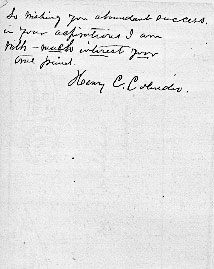 In wishing you abundant success
in your aspirations I am
with - much interest your
true friend.
Henry C.